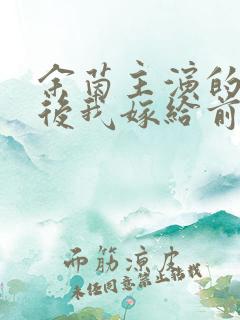 余茵主演的
後我嫁给前
面筋凉皮
未经同意禁止转载